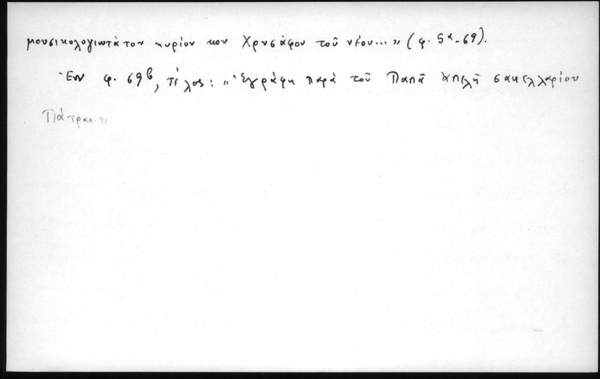 μουσικολογιωτάτου κυρίου κου Χρυσάφου τοῦ νέου...» (φ. 5α-69).
Ἐν φ. 69β, τέλος: «Ἐγράφη παρὰ τοῦ Παπᾶ σακελλαρίου
Πάτραι.»